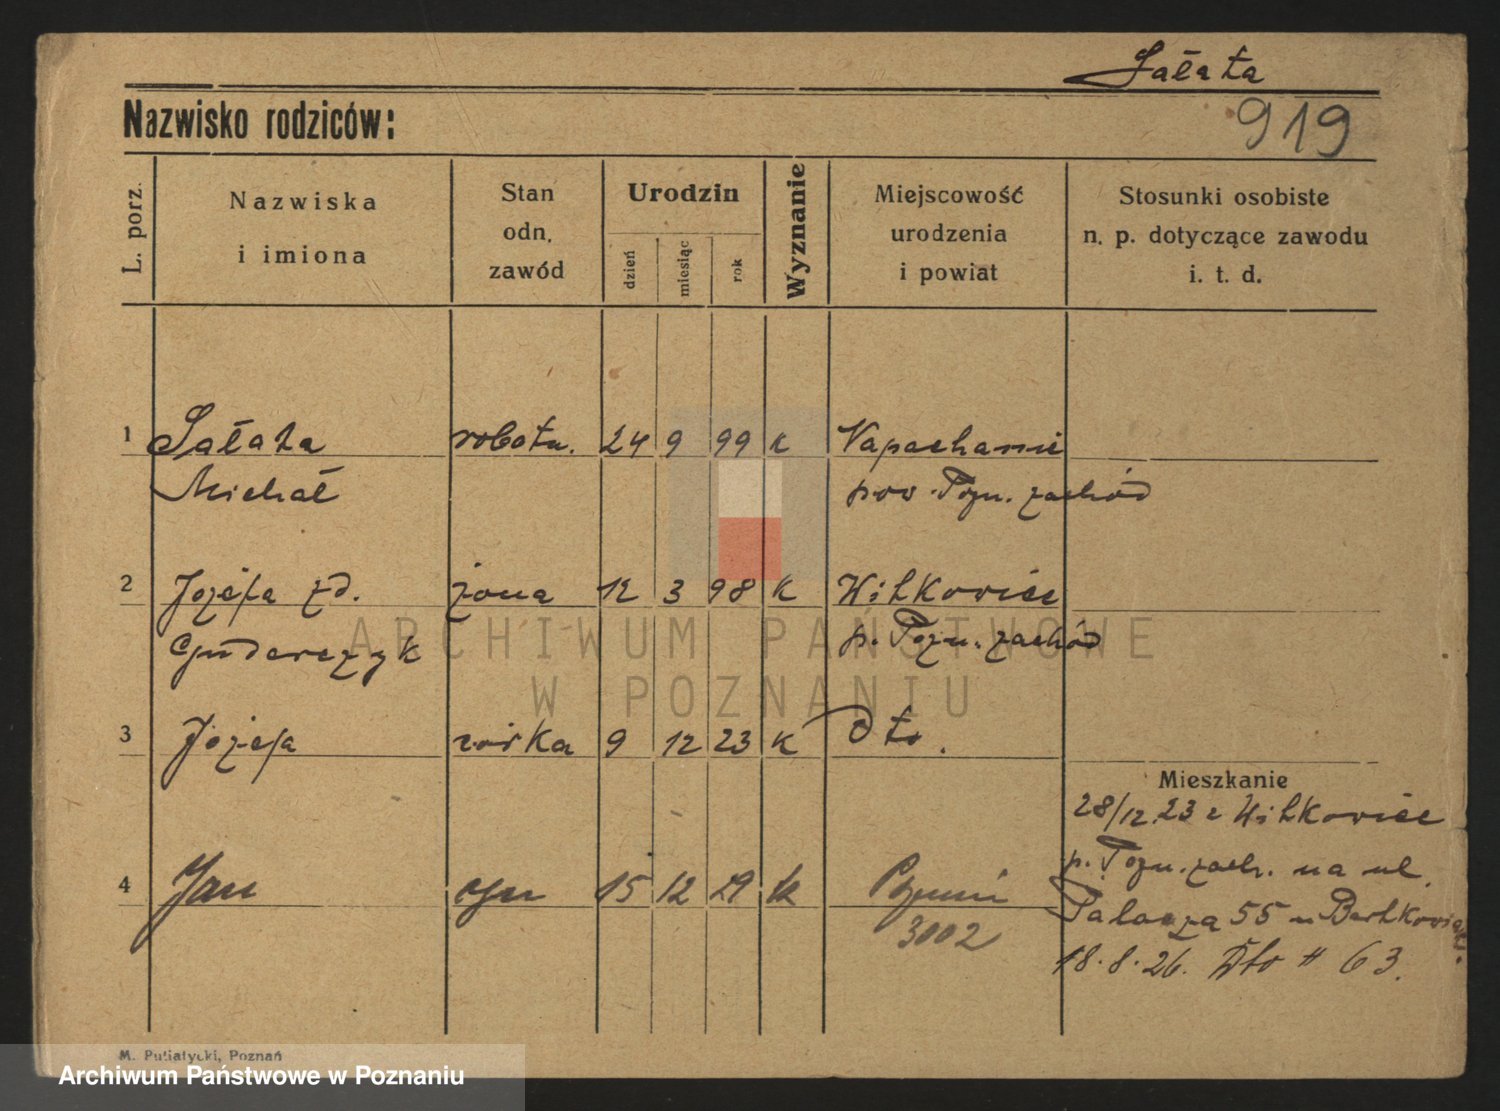 Sałata
Nazwisko rodziców:
919
L. porz.
Nazwiska
i imiona
Stan
odn.
zawód
Urodzin
dzień
miesiąc
rok
Wyznanie
Miejscowość
urodzenia
i powiat
Stosunki osobiste
n. p. dotyczące zawodu
i. t. d.
1 Sałata robotn. 24 9 99 k Napachanie
Michał pow. Pozn. zachód
2 Józefa żona 12 3 98 k Witkowice
Guderczyk p. Pozn. zachód
ARCHIWUM PAŃSTWOWE
W POZNANIU
3 Józefa córka 9 12 23 k Dto.
Mieszkanie
28/12.23 z Witkowice
p. Pozn. zach. na ul.
4 Jan syn 15 12 29 k Poznań
Palacza 55 u Bartkowiak.
3002
18.8.26. Dto " 63.
M. Putiatycki, Poznań
Archiwum Państwowe w Poznaniu